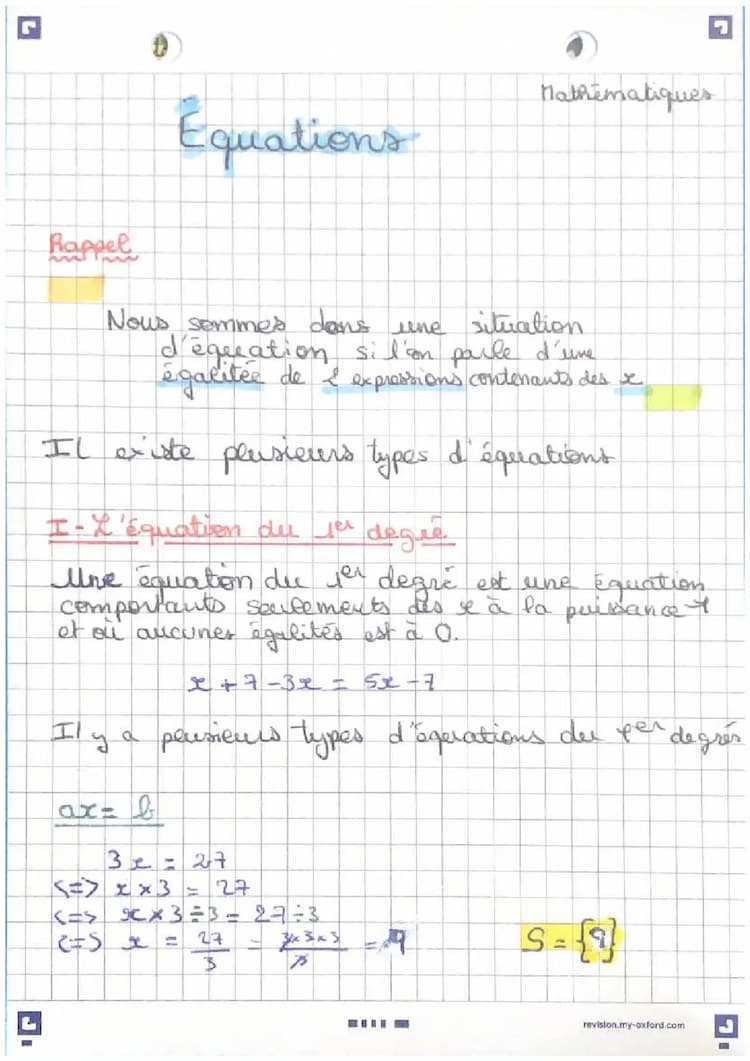 Mathématiques
Équations
Rappel
Nous sommes dans une situation
d'équation, si l'on parle d'une
égalitée de 2 expressions contenants des x
Il existe plusieurs types d'équations
I - L'équation du 1er degré
Une équation du 1er degré est une équation
comportants seulements des x à la puissance 1
et où aucunes égalités est à 0.
x + 7 - 3x = 5x - 7
Il y a plusieurs types d'équations du 1er degrés
ax = b
3x = 27
<=> x × 3 = 27
<=> x × 3 ÷ 3 = 27 ÷ 3
<=> x = 27/3 = 3×3×3/3 = 9
S = {9}
revision.my-oxford.com